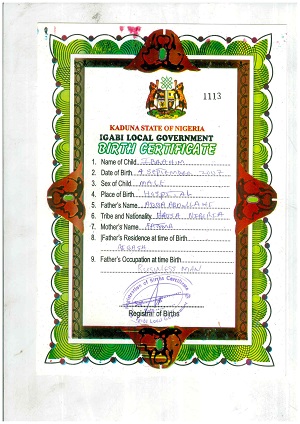 1113
KADUNA STATE OF NIGERIA
IGABI LOCAL GOVERNMENT
BIRTH CERTIFICATE
1. Name of Child... IBRAHIM
2. Date of Birth... 4 September 2007
3. Sex of Child... MALE
4. Place of Birth... HOSPITAL
5. Father's Name...
6. Tribe and Nationality... HAUSA
7. Mother's Name... FATIMA
8. Father's Residence at time of Birth
9. Father's Occupation at time Birth
BUSINESS MAN
Registrar of Births